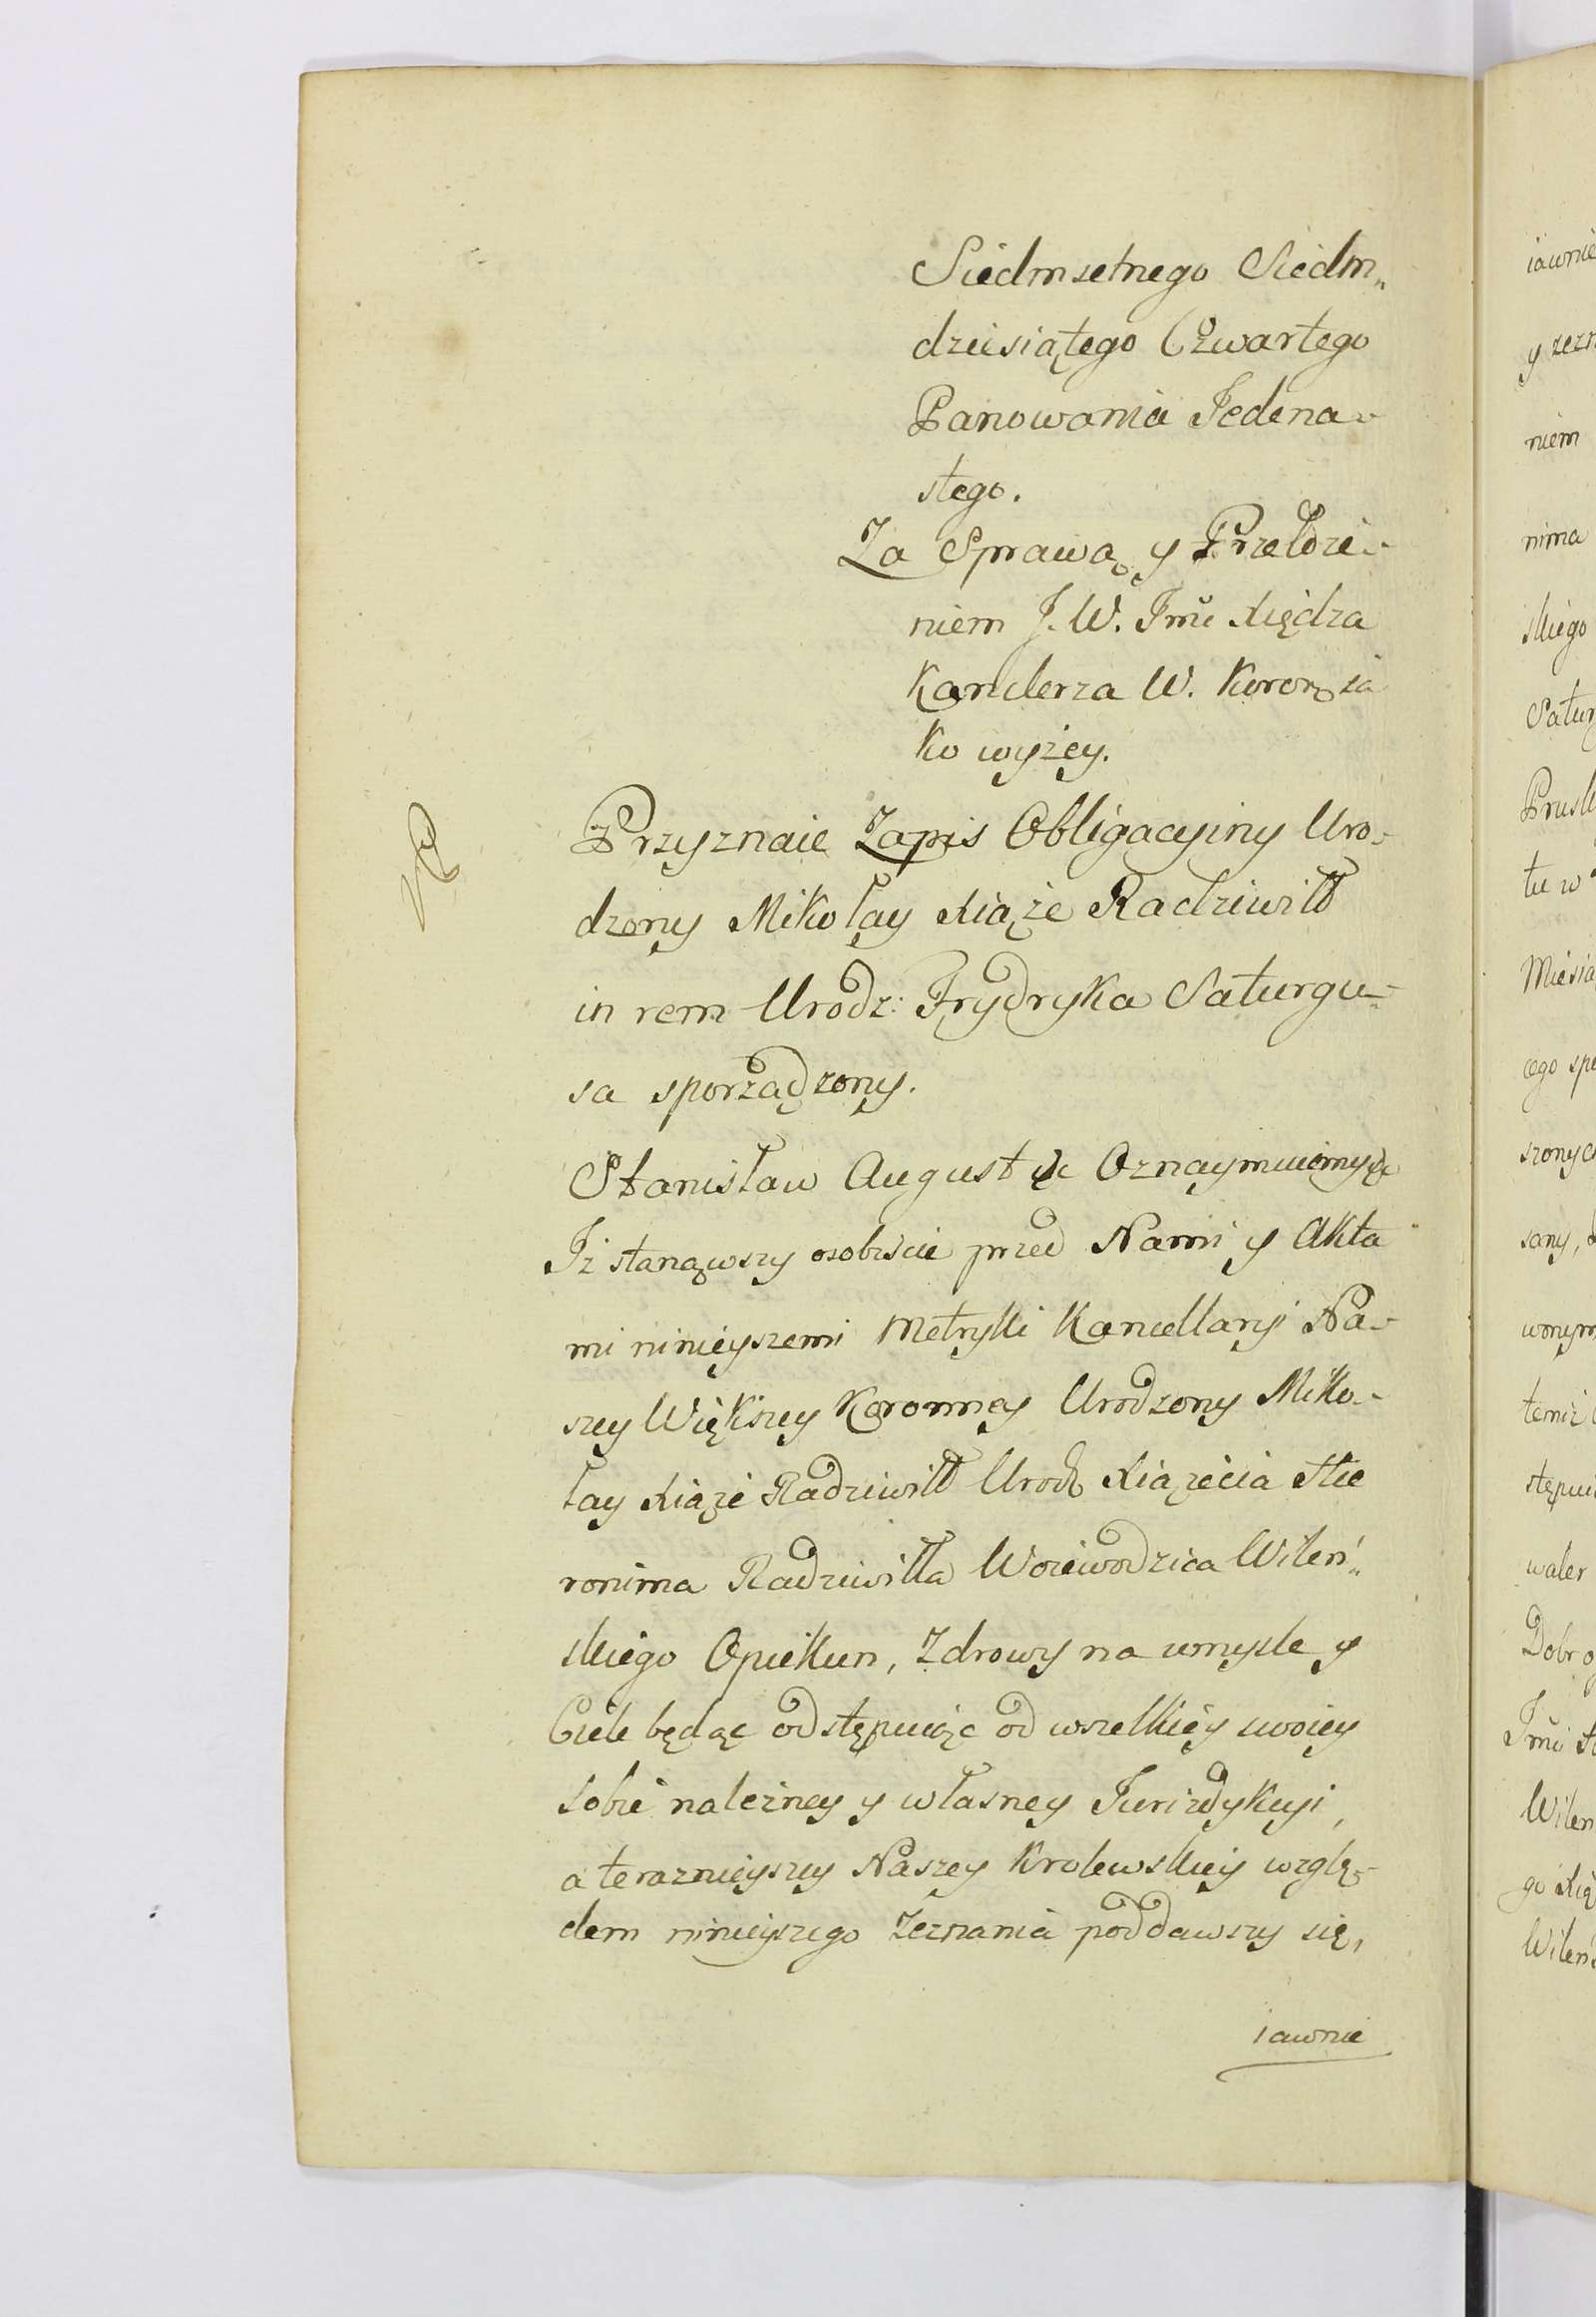 Siedmsetnego Siedm„
dziesiątego Czwartego
Panowania Jedena-
stego.
Za Sprawą y Przełoże-
niem J. W. Jmć Xiędza
Kanclerza W. Koron: ia
ko wyżey.
Przyznaie Zapis Obligacyiny Uro-
dzony Mikołay Xiąże Radziwiłł
in rem Urodz: Frydryka Saturgu-
sa sporządzony.
Stanisław August &c Oznaymuiemy &c
Iż stanąwszy osobiście przed Nami y Akta
mi ninieyszemi Metryki Kancellaryi Na-
szey Większey Koronney Urodzony Miko-
łay Xiąże Radziwiłł Urodz Xiążecia Hie
ronima Radziwiłła Woiewodzica Wileń„
skiego Opiekun, Zdrowy na umyśle y
Ciele będąc odstępuiąc od wszelkiey swoiey
sobie należney y własney Jurizdykcyi,
a terazniejszey Naszey Krolewskiey wzglę-
dem ninieyszego Zeznania poddawszy się,
iawnie
iawnie
niem
nima
skiego
Miesia
sany,
waler
Dobr
Wilen